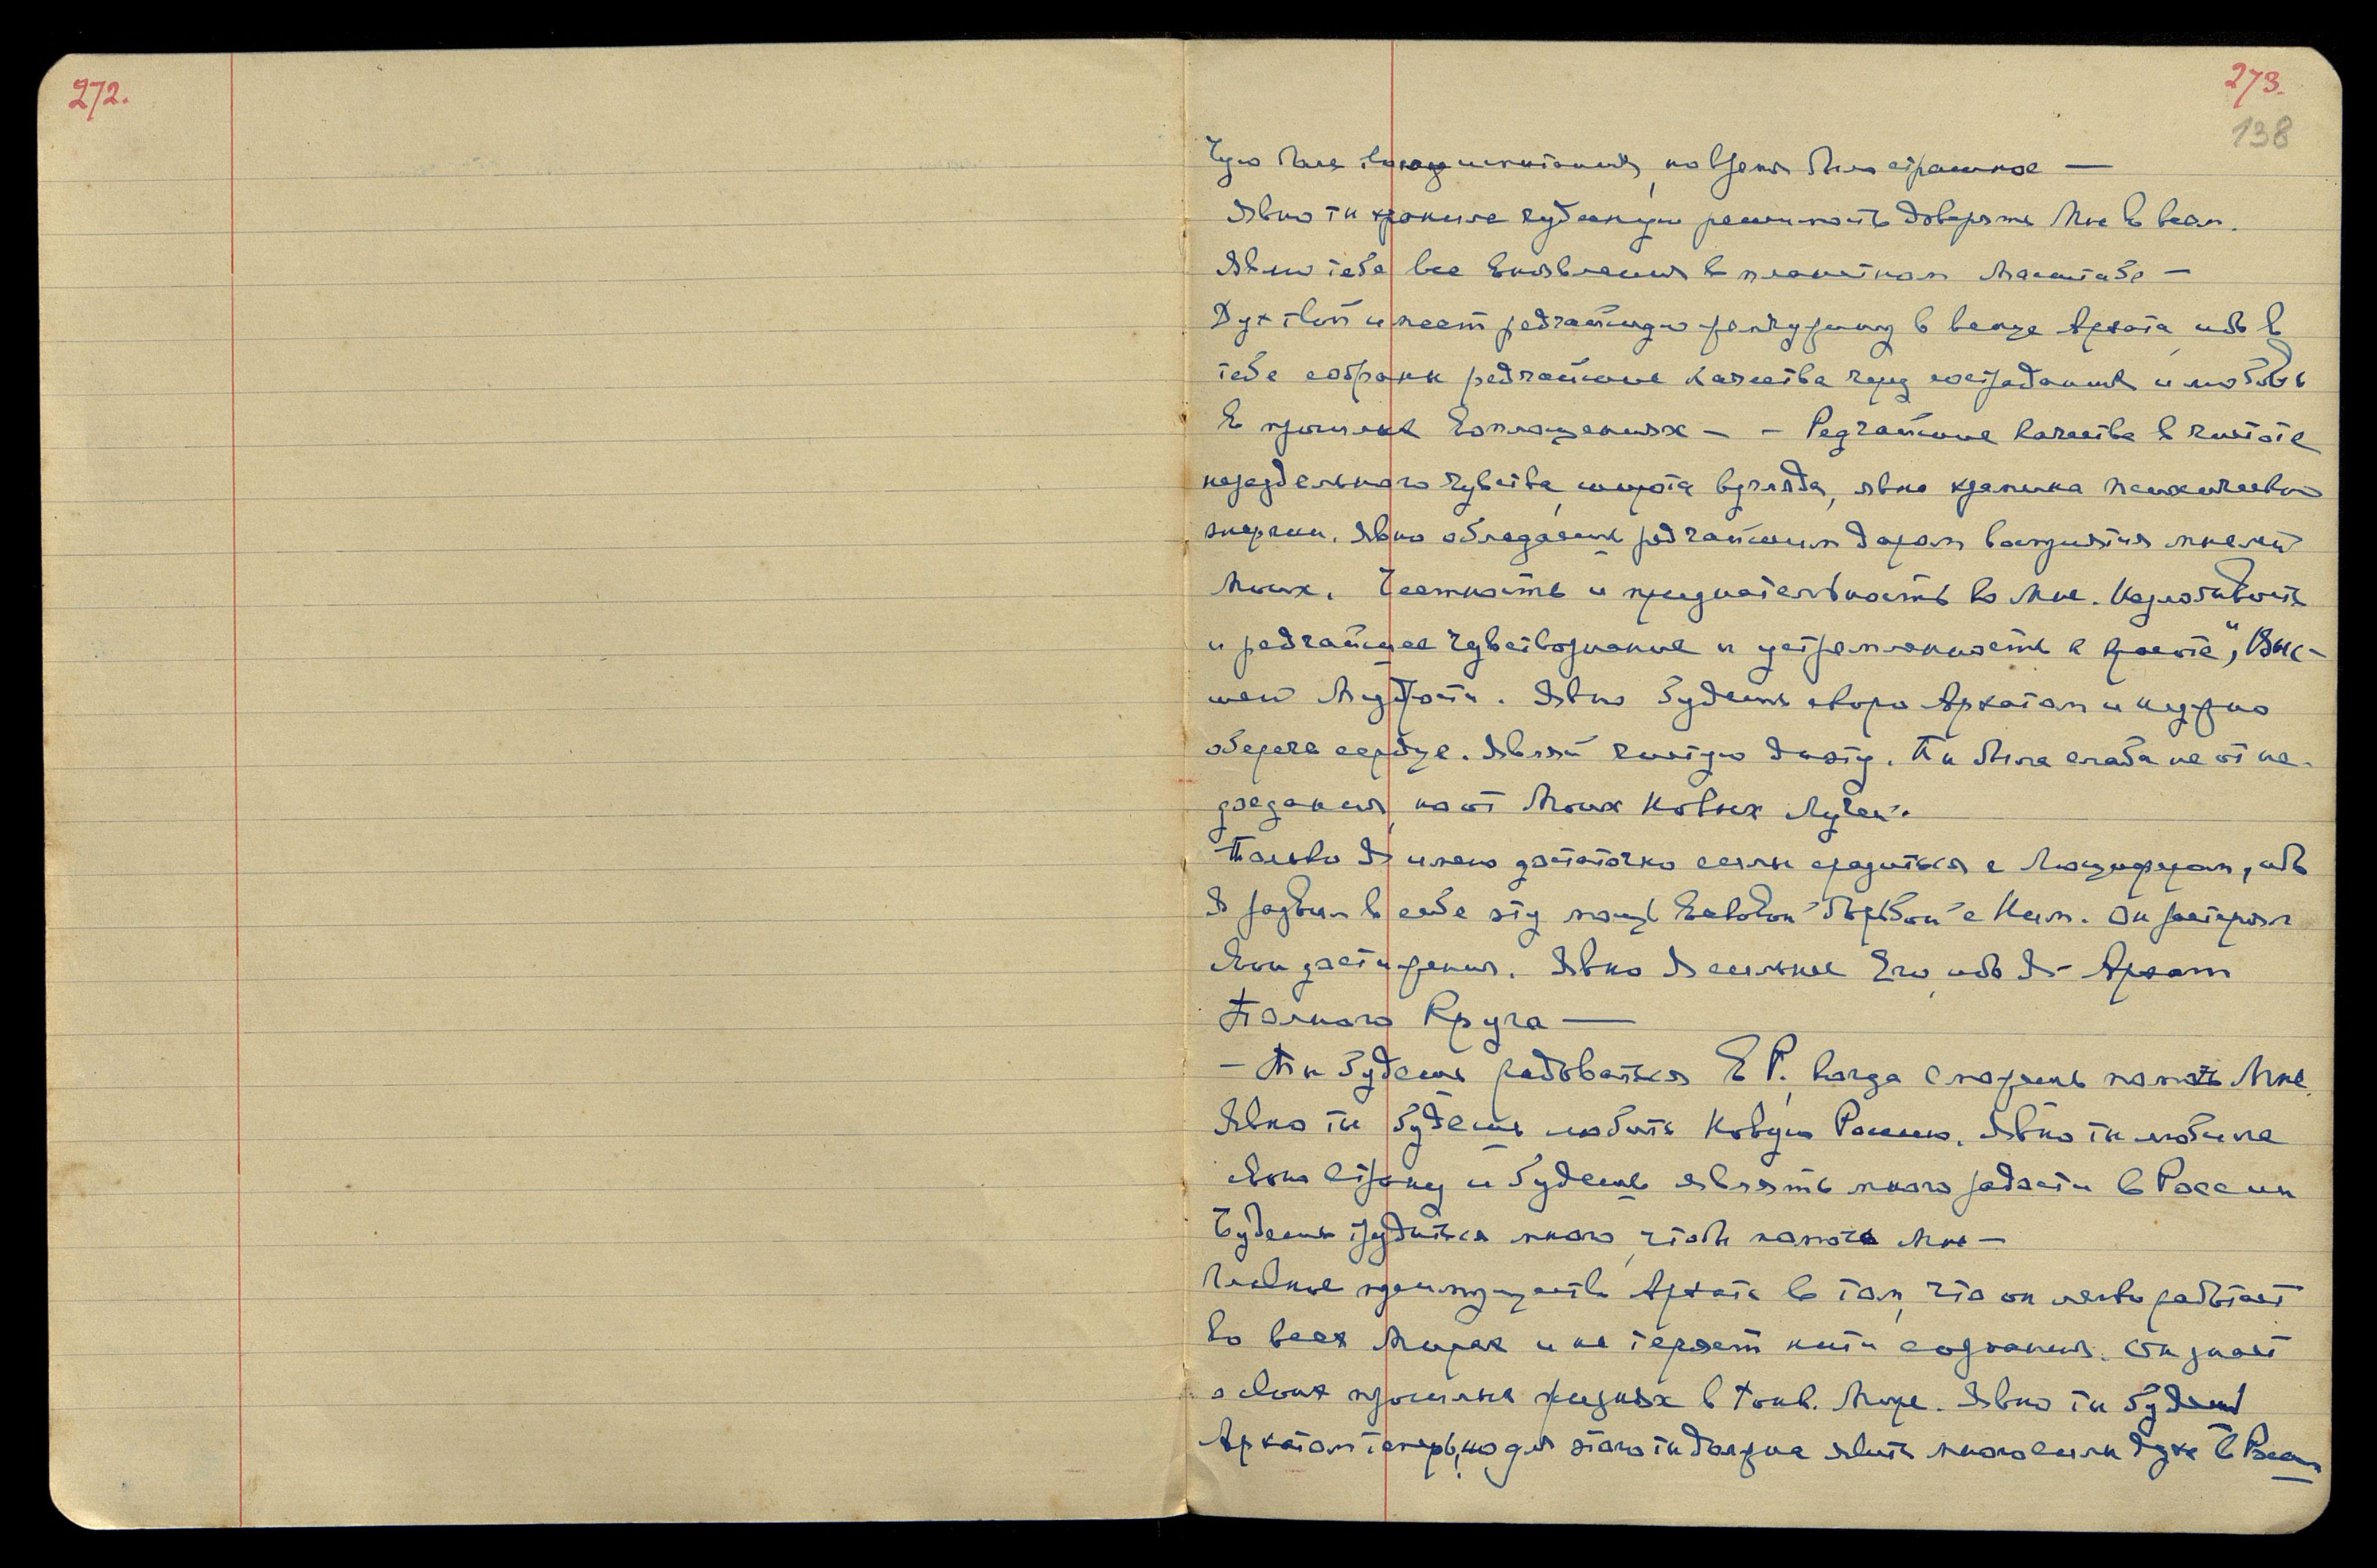 272.
273.
138
испытания, но время было страшное —
Явно ты хранила чудесную решимость доверять Мне во всем.
Явлю тебе все в планетном масштабе —
Дух твой имеет редчайшую в венце Архата, ибо в
тебе собраны редчайшие качества через сострадания и любовь
в прошлых воплощениях — – Редчайшие качества в чистоте
нераздельного чувства, широта взгляда, явно хранима психической
энергии. Явно обладаешь редчайшим даром восприятия мыслей
Моих. Честность и признательность ко Мне.
и редчайшее чувствознание и устремленность к красоте, Выс-
шей Мудрости. Явно будешь скоро Архатом и нужно
беречь сердце. Являй чистую диэту. Ты была слаба не от не-
доедания, но от Моих Новых Лучей.
Только Я имею достаточно силы сразиться с Люцифером, ибо
Я развил в себе эту мощь вековой борьбой с Ним. Он растерял
свои достижения. Явно Я сильнее Его, ибо Я – Архат
Полного Круга —
– Ты будешь радоваться в Р., когда сможешь помочь Мне.
Явно ты будешь любить Новую Россию. Явно ты любила
свою страну и будешь являть много радости в России
Будешь трудиться много, чтобы помочь Мне —
Главное преимущество Архата в том, что он легко работает
во всех Мирах и не теряет нити сознания. Он знает
о своих прошлых жизнях в Тонк. Мире. Явно ты будешь
Архатом теперь, но для этого ты должна явить много силы духа в